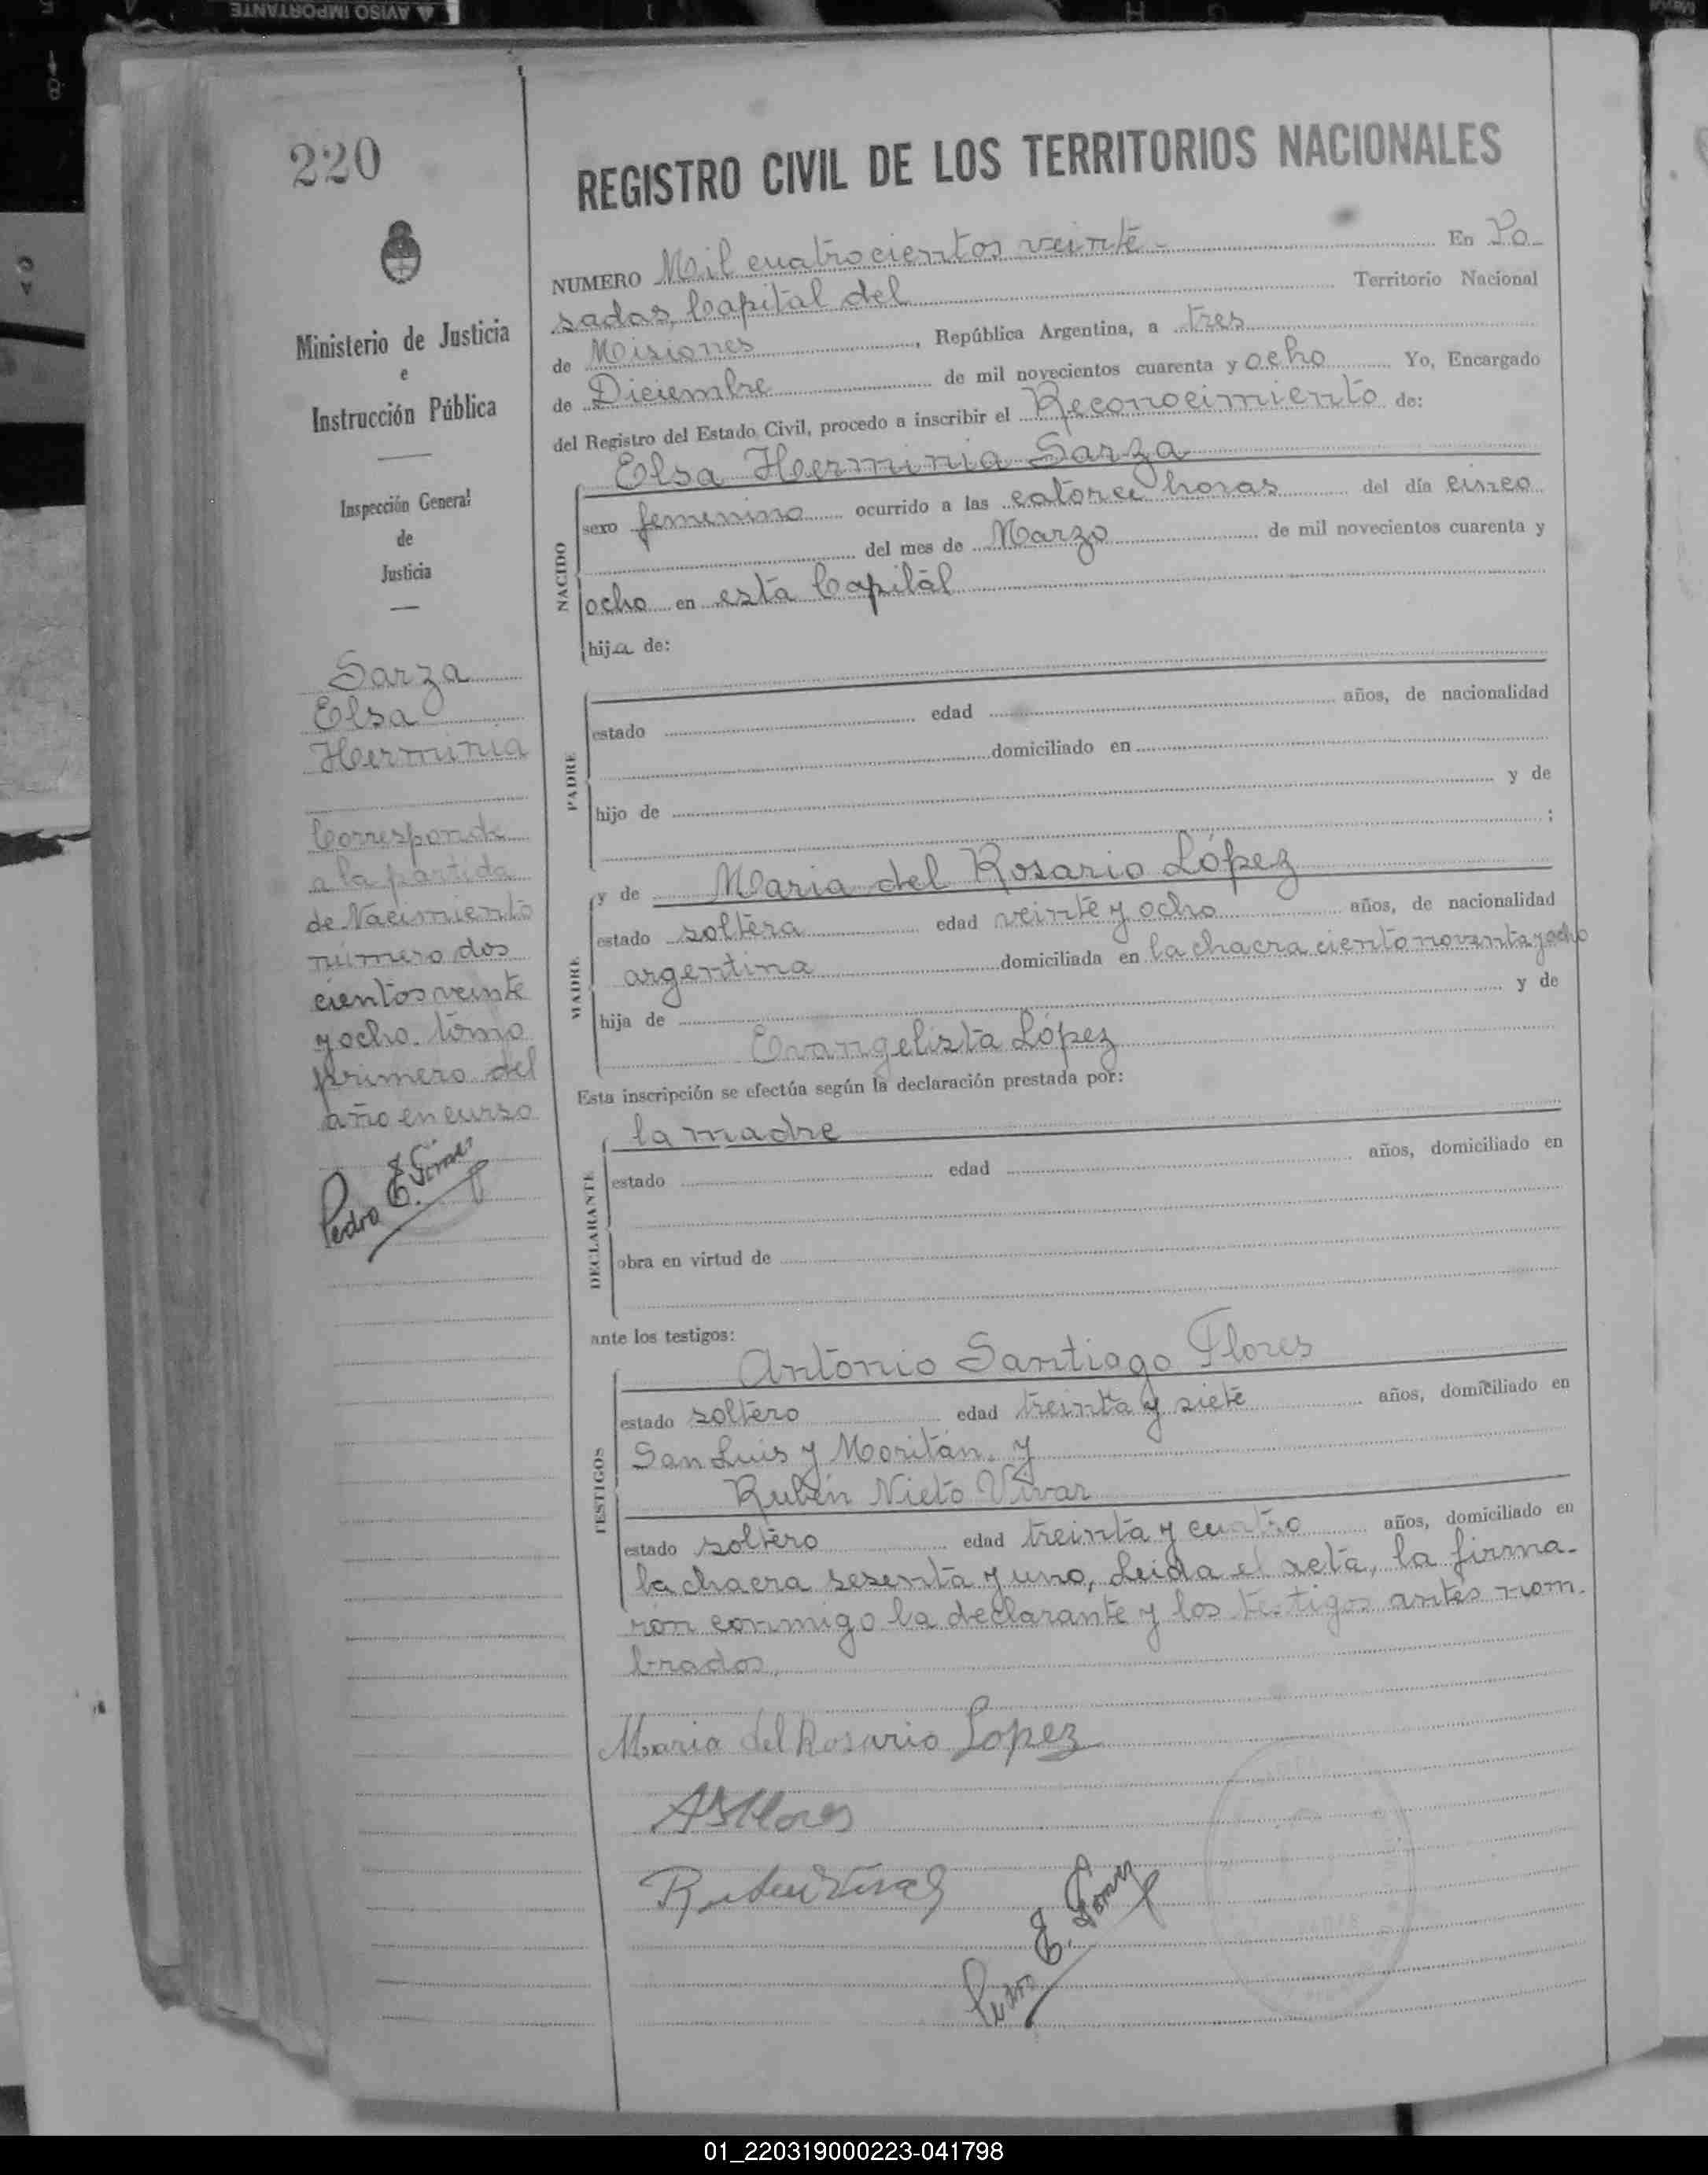 AVISO IMPORTANTE
220
REGISTRO CIVIL DE LOS TERRITORIOS NACIONALES
Ministerio de Justicia
e
Instrucción Pública
Inspección General
de
Justicia
Sarza
Elsa
Herminia
Corresponde
a la partida
de Nacimiento
número dos
cientos veinte
y ocho. tomo
primero del
año en curso
Pedro E.
NUMERO Mil cuatrocientos veinte - En Po-
sadas, Capital del Territorio Nacional
de Misiones, República Argentina, a tres
de Diciembre de mil novecientos cuarenta y ocho Yo, Encargado
del Registro del Estado Civil, procedo a inscribir el Reconocimiento de:
Elsa Herminia Sarza
NACIDO
sexo femenino ocurrido a las catorce horas del día cinco
del mes de Marzo de mil novecientos cuarenta y
ocho en esta Capital
hija de:
PADRE
estado edad años, de nacionalidad
domiciliado en
hijo de y de
;
MADRE
y de Maria del Rosario López
estado soltera edad veinte y ocho años, de nacionalidad
argentina domiciliada en la chacra ciento noventa y ocho
hija de y de
Evangelista López
Esta inscripción se efectúa según la declaración prestada por:
DECLARANTE
la madre
estado edad años, domiciliado en
obra en virtud de
ante los testigos:
TESTIGOS
Antonio Santiago Flores
estado soltero edad treinta y siete años, domiciliado en
San Luis y Moritán. y
Rubén Nieto Vivar
estado soltero edad treinta y cuatro años, domiciliado en
la chacra sesenta y uno, Leida el acta, la firma-
ron conmigo la declarante y los testigos antes nom-
brados,
Maria del Rosario Lopez
AS Flores
Pedro E.
01_220319000223-041798